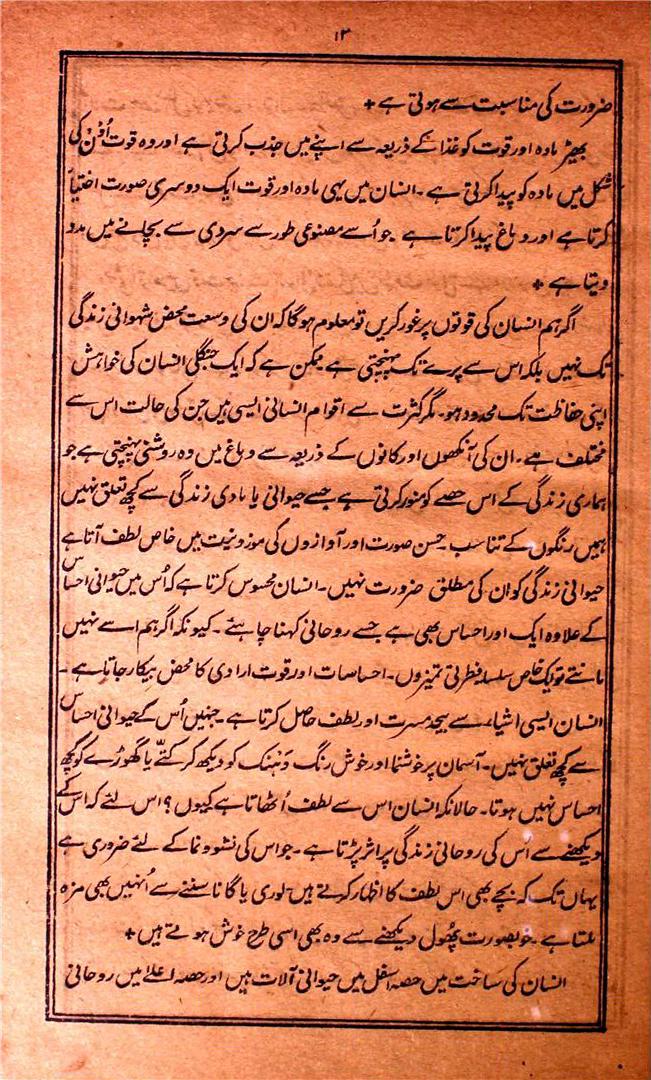 ۱۳
ضرورت کی مناسبت سے ہوتی ہے +
بھیڑ مادہ اور قوت کو غذا کے ذریعہ سے اپنے میں جذب کرتی ہے اور وہ قوت اُون کی
شکل میں مادہ کو پیدا کرتی ہے ۔ انسان میں یہی مادہ اور قوت ایک دوسری صورت اختیار
کرتا ہے اور دماغ پیدا کرتا ہے جو اُسے مصنوعی طور سے سردی سے بچانے میں مدد
دیتا ہے +
اگر ہم انسان کی قوتوں پر غور کریں تو معلوم ہوگا کہ ان کی وسعت محض شہوانی زندگی
تک نہیں بلکہ اس سے پرے تک پہنچتی ہے ممکن ہے کہ ایک جنگلی انسان کی خواہش
اپنی حفاظت تک محدود ہو ۔ مگر کثرت سے اقوام انسانی ایسی ہیں جن کی حالت اس سے
مختلف ہے ۔ ان کی آنکھوں اور کانوں کے ذریعہ سے دماغ میں وہ روشنی پہنچتی ہے جو
ہماری زندگی کے اس حصے کو منور کرتی ہے جسے حیوانی یا مادی زندگی سے کچھ تعلق نہیں
ہمیں رنگوں کے تناسب ۔ حسن صورت اور آوازوں کی موزونیت میں خاص لطف آتا ہے
حیوانی زندگی کو ان کی مطلق ضرورت نہیں ۔ انسان محسوس کرتا ہے کہ اُس میں حیوانی احساس
کے علاوہ ایک اور احساس بھی ہے جسے روحانی کہنا چاہئے ۔ کیونکہ اگر ہم اسے نہیں
مانتے تو یک خاص سلسلہ فطرتی تمیزوں ۔ احساسات اور قوت ارادی کا محض بیکار جاتا ہے ۔
انسان ایسی اشیاء سے بیحد مسرت اور لطف حاصل کرتا ہے ۔ جنہیں اُس کے حیوانی احساس
سے کچھ تعلق نہیں ۔ آسمان پر خوشنما اور خوش رنگ دَہنک کو دیکھ کر کتّے یا گھوڑے کو کچھ
احساس نہیں ہوتا ۔ حالانکہ انسان اس سے لطف اُٹھاتا ہے کیوں ؟ اس لئے کہ اس کے
دیکھنے سے اس کی روحانی زندگی پر اثر پڑتا ہے ۔ جو اس کی نشوونما کے لئے ضروری ہے
یہاں تک کہ بچے بھی اس لطف کا اظہار کرتے ہیں ۔ لوری یا گانا سننے سے اُنہیں بھی مزہ
ملتا ہے ۔ خوبصورت پھُول دیکھنے سے وہ بھی اسی طرح خوش ہوتے ہیں +
انسان کی ساخت میں حصہ اسفل میں حیوانی آلات ہیں اور حصہ اعلےٰ میں روحانی